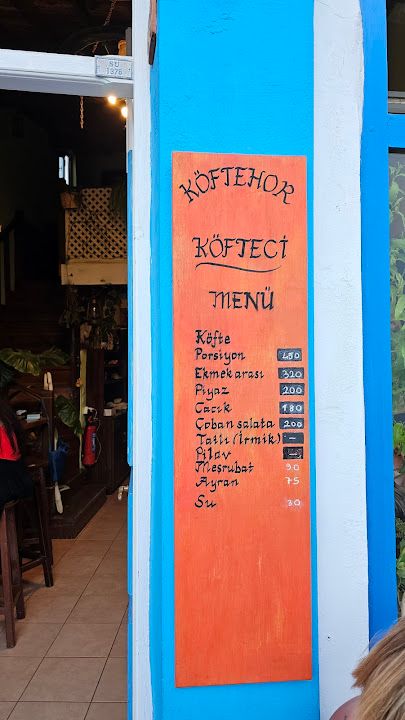 SU
1376
KÖFTEHOR
KÖFTECİ
MENÜ
Köfte
Porsiyon 450
Ekmek arası 320
Piyaz 200
Cacık 180
Çoban salata 200
Tatlı (İrmik) —
Pilav —
Meşrubat 90
Ayran 75
Su 30